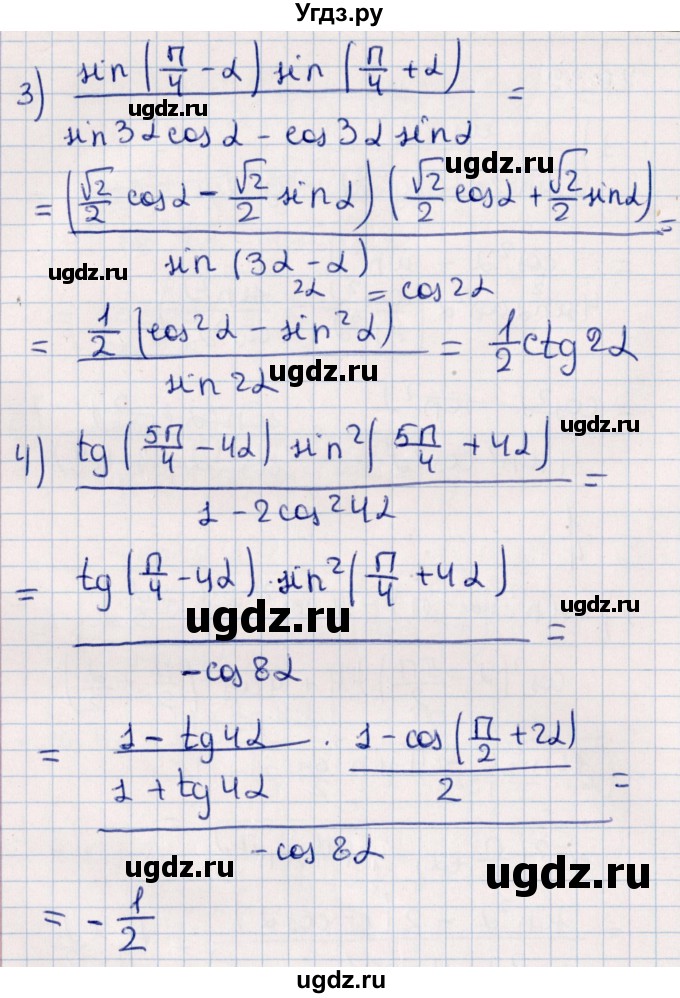 Угдз.ру
3) sin(π/4 - α) sin(π/4 + α) / (sin3α cosα - cos3α sinα) =
ugdz.ru
ugdz.ru
= (√2/2 cosα - √2/2 sinα)(√2/2 cosα + √2/2 sinα) / sin(3α - α) =
ugdz.ru
ugdz.ru
2α = cos2α
= 1/2 (cos²α - sin²α) / sin2α = 1/2 ctg2α
ugdz.ru
4) tg(5π/4 - 4α) sin²(5π/4 + 4α) / (1 - 2cos²4α) =
ugdz.ru
ugdz.ru
= tg(π/4 - 4α) · sin²(π/4 + 4α) / (-cos8α) =
ugdz.ru
ugdz.ru
= (1 - tg4α)/(1 + tg4α) · (1 - cos(π/2 + 2α))/2 / (-cos8α) =
ugdz.ru
ugdz.ru
= - 1/2
ugdz.ru
ugdz.ru